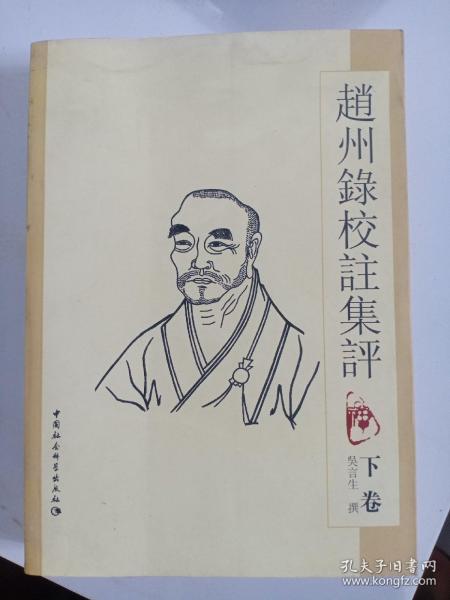 趙州錄校註集評
禪
下卷
吳言生 撰
中国社会科学出版社
孔夫子旧书网
www.kongfz.com